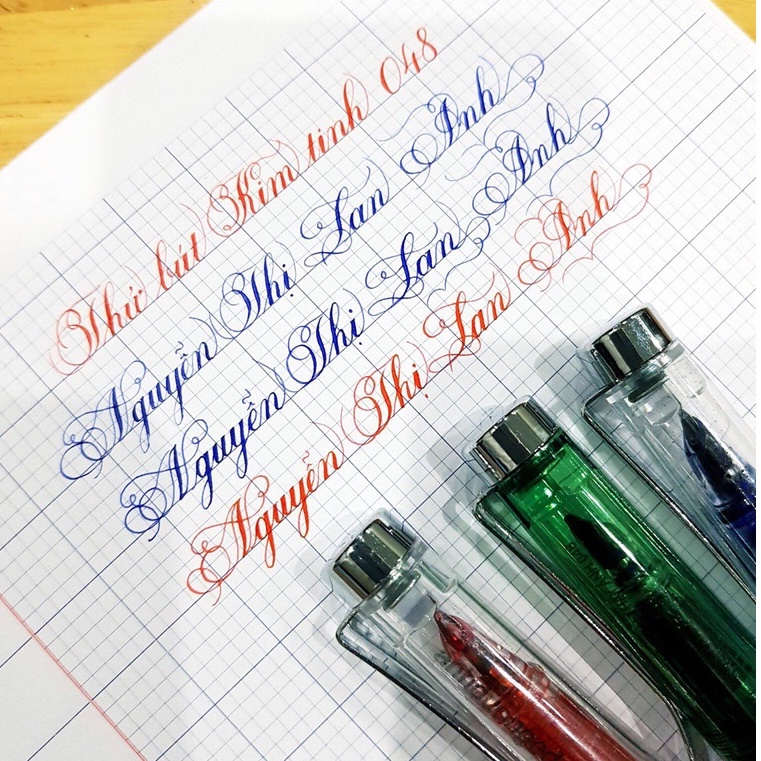 Thử bút Kim tinh 048
Nguyễn Thị Lan Anh
Nguyễn Thị Lan Anh
Nguyễn Thị Lan Anh